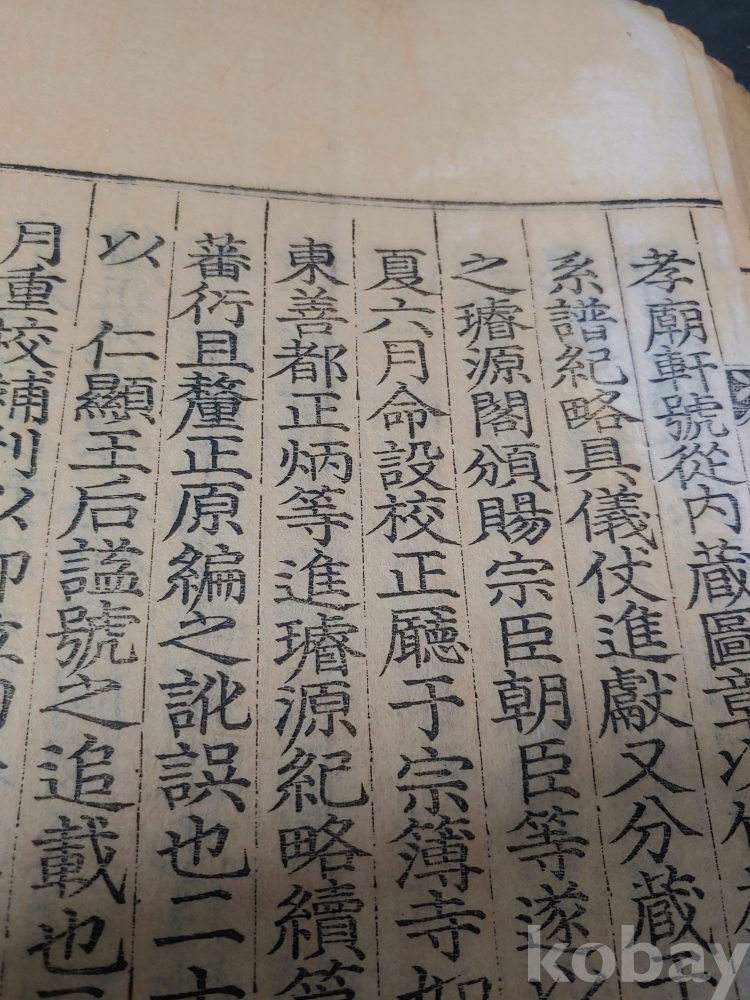 孝廟軒號從內蔵圖章以
系譜紀略具儀仗進獻又分蔵于
之璿源閣頒賜宗臣朝臣等遂以
夏六月命設校正廳于宗簿寺如
東善都正炳等進璿源紀略續
蕃衍且釐正原編之訛誤也二十
以 仁顯王后謚號之追載也
月重校補刊以
kobay